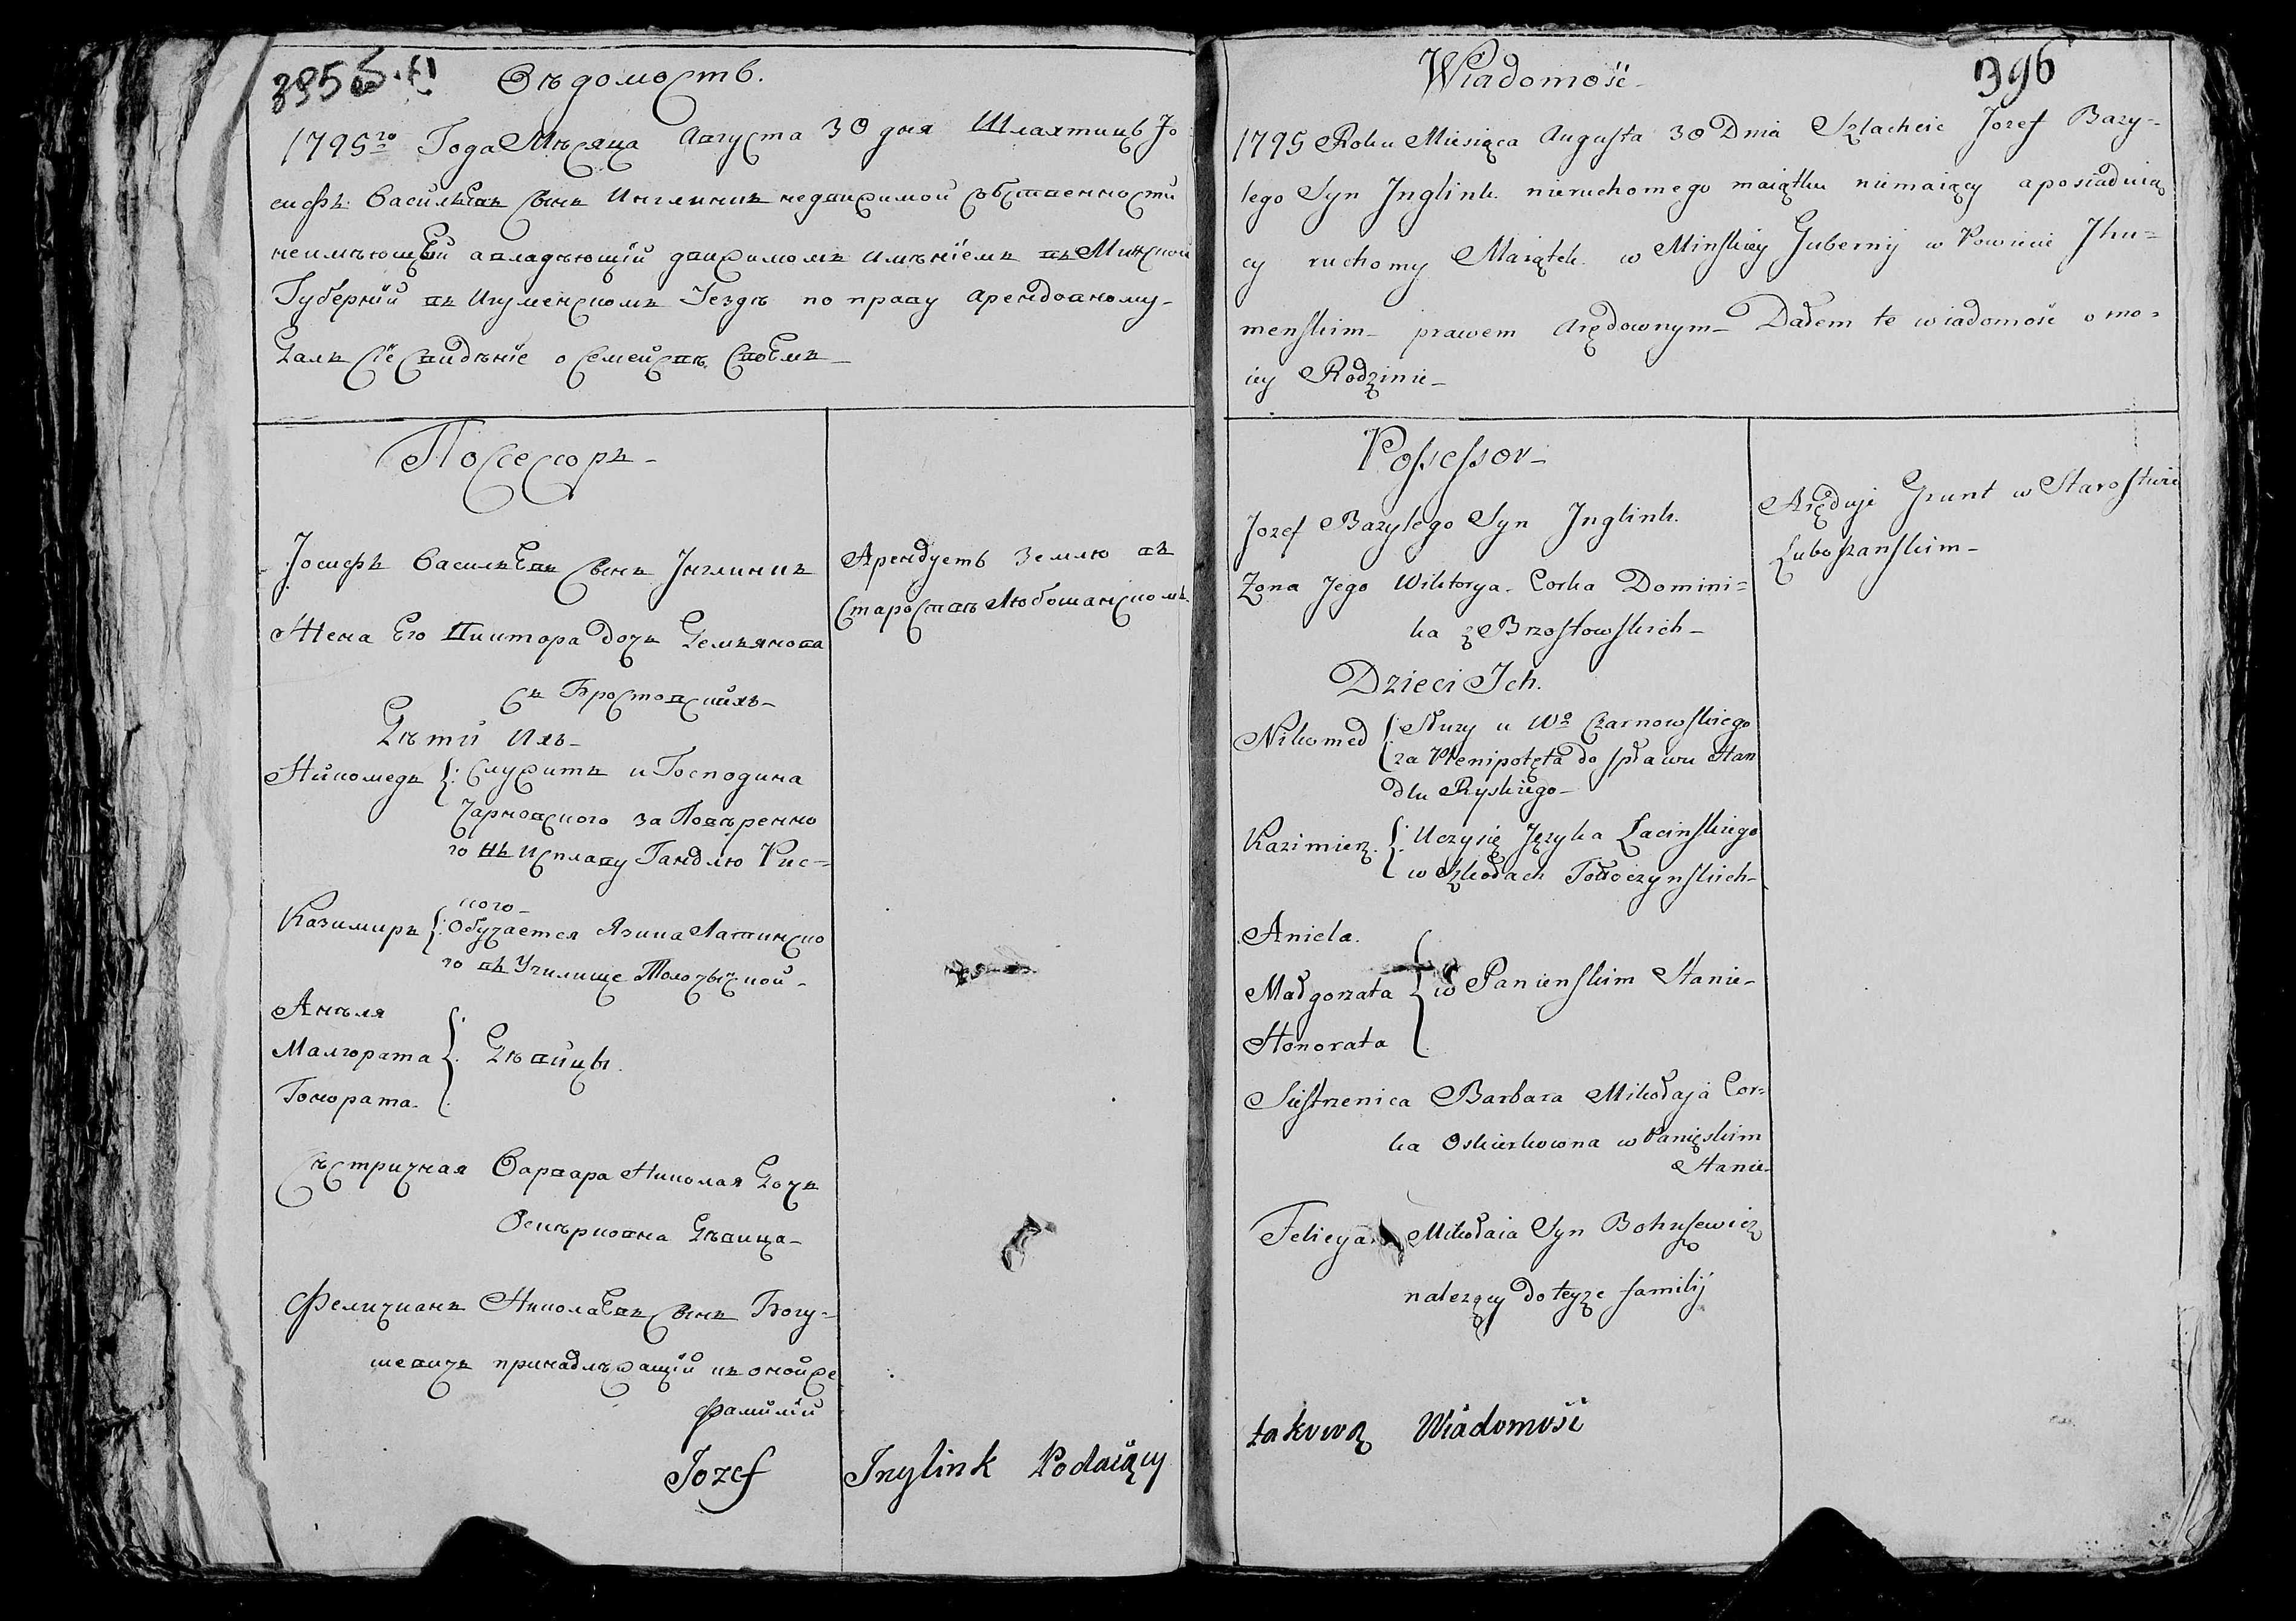 395 об.
Вѣдомость.
1795го Года Мѣсяца Августа 30 дня Шляхтичь Іо
сифъ Васильевъ сынъ Инглинкъ недвижимой собственности
неимѣющей авладѣющій движимомъ имѣніемъ въ Минской
Губерній въ Игуменскомъ Уездѣ по праву арендовному-
Далъ сіе свидѣніе о семействѣ своемъ
Поссесоръ
Іосифъ Васильевъ сынъ Інглинкъ
Жена Его Викторя дочъ Демьянова
съ Бростовскихъ
Дѣти ихъ
Никомедъ {: служитъ у Господина
Чарновского за Повѣренно
го въ исплаву Гандлю Рис=
кого
Казимиръ {: Обучается Языка Латинско
го въ Училище Толочыской
Анѣля
Малгората {: Дѣвицы.
Гонората
Сѣстричная Варвара Николая Дочъ
Оскѣрковна Дѣвица
Феличианъ Николаевъ сынъ Богу=
шевичъ принадлѣжащій къ онойже
фамиліи
Арендуеть землю въ
Старостѣ Любошанскомъ
Jozef Inglink Podaiący
396
Wiadomość
1795 Roku Miesiąca Augusta 30 Dnia Szlachcic Jozef Bazy=
lego Syn Inglink. nieruchomego maiątku niemaiący aposiadaią
cy ruchomy Maiątek w Minskiey Gubernij w Powiecie Jhu=
menskim prawem Arędownym Dałem te wiadomość o mo=
iey Rodzinie
Possessor
Jozef Bazylego Syn Inglink.
Zona Jego Wiktorya Corka Domini=
ka z Brzostowskich
Dzieci Ich.
Nikomed {: Słuzy u Wo Czarnowskiego
za Plenipotęta do spławu Han
dlu Ryskiego
Kazimierz {: Uczysię Języka Łacinskiego
w Szkołach Tołoczynskich
Aniela.
Małgorzata { w Panienskim Stanie
Honorata
Siestrzenica Barbara Mikołaja Cor=
ka Oskierkowna w Panięskim
Stanie
Felicyan Mikołaia Syn Bohusewicz
nalezący do teyze familij
Aręduje Grunt w Starostwie
Luboszanskim
takową Wiadomość